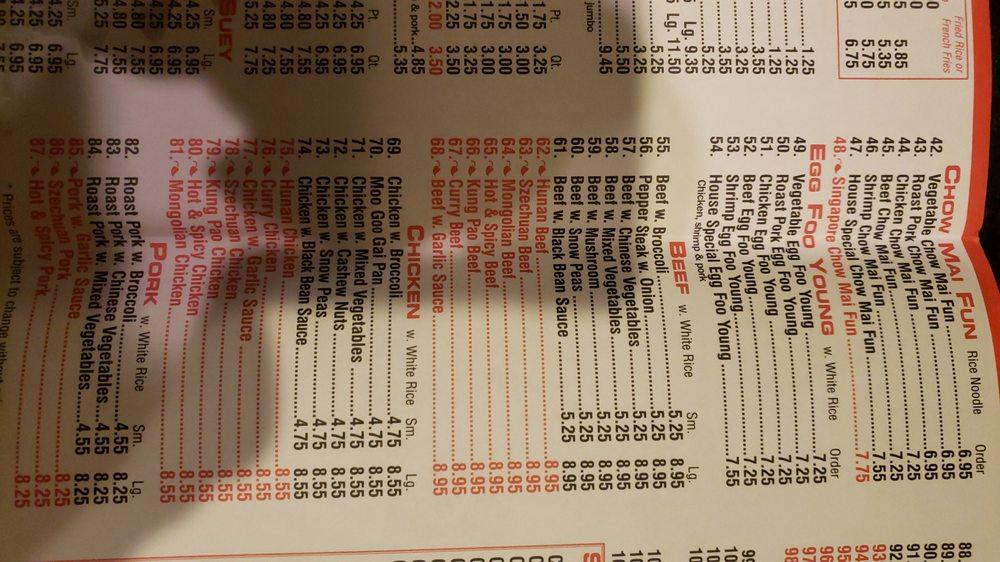 Fried Rice or
French Fries
5.85
5.35
5.75
6.75
1.25
1.25
3.55
3.55
5.25
Lg. 9.35
Lg. 11.50
jumbo 9.45
Pt. Qt.
1.75 3.25
1.50 3.00
1.75 3.00
1.75 3.00
2.25 3.50
2.00 3.50
& pork 4.85
5.35
Pt. Qt.
4.25 6.95
4.25 6.95
4.25 6.95
4.80 7.55
4.80 7.55
4.80 7.25
5.25 7.75
Suey
Sm. Lg.
4.25 6.95
4.25 6.95
4.80 7.55
4.80 7.55
5.25 7.75
Sm. Lg.
4.25 6.95
4.25 6.95
Chow Mai Fun Rice Noodle Order
42. Vegetable Chow Mai Fun 6.95
43. Roast Pork Chow Mai Fun 6.95
44. Chicken Chow Mai Fun 7.25
45. Beef Chow Mai Fun 7.25
46. Shrimp Chow Mai Fun 7.25
47. House Special Chow Mai Fun 7.55
48. Singapore Chow Mai Fun 7.75
Egg Foo Young w. White Rice Order
49. Vegetable Egg Foo Young 7.25
50. Roast Pork Egg Foo Young 7.25
51. Chicken Egg Foo Young 7.25
52. Beef Egg Foo Young 7.25
53. Shrimp Egg Foo Young 7.25
54. House Special Egg Foo Young 7.55
Chicken, shrimp & pork
Beef w. White Rice Sm. Lg.
55. Beef w. Broccoli 5.25 8.95
56. Pepper Steak w. Onion 5.25 8.95
57. Beef w. Chinese Vegetables 5.25 8.95
58. Beef w. Mixed Vegetables 5.25 8.95
59. Beef w. Mushroom 5.25 8.95
60. Beef w. Snow Peas 5.25 8.95
61. Beef w. Black Bean Sauce 5.25 8.95
62. Hunan Beef 8.95
63. Szechuan Beef 8.95
64. Mongolian Beef 8.95
65. Hot & Spicy Beef 8.95
66. Kung Pao Beef 8.95
67. Curry Beef 8.95
68. Beef w. Garlic Sauce 8.95
Chicken w. White Rice Sm. Lg.
69. Chicken w. Broccoli 4.75 8.55
70. Moo Goo Gai Pan 4.75 8.55
71. Chicken w. Mixed Vegetables 4.75 8.55
72. Chicken w. Cashew Nuts 4.75 8.55
73. Chicken w. Snow Peas 4.75 8.55
74. Chicken w. Black Bean Sauce 4.75 8.55
75. Hunan Chicken 8.55
76. Curry Chicken 8.55
77. Chicken w. Garlic Sauce 8.55
78. Szechuan Chicken 8.55
79. Kung Pao Chicken 8.55
80. Hot & Spicy Chicken 8.55
81. Mongolian Chicken 8.55
Pork w. White Rice Sm. Lg.
82. Roast Pork w. Broccoli 4.55 8.25
83. Roast Pork w. Chinese Vegetables 4.55 8.25
84. Roast Pork w. Mixed Vegetables 4.55 8.25
85. Pork w. Garlic Sauce 8.25
86. Szechuan Pork 8.25
87. Hot & Spicy Pork 8.25
* Prices are subject to change without
88.
89.
90.
91.
92.
93
94
95
96
97
98
99